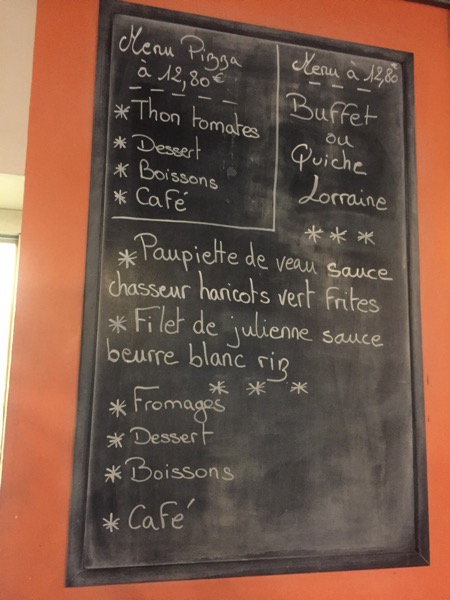 Menu Pizza
à 12,80€
* Thon tomates
* Dessert
* Boissons
* Café
Menu à 12,80€
Buffet
ou
Quiche
Lorraine
* * *
* Paupiette de veau sauce
chasseur haricots vert frites
* Filet de julienne sauce
beurre blanc riz
* * *
* Fromages
* Dessert
* Boissons
* Café